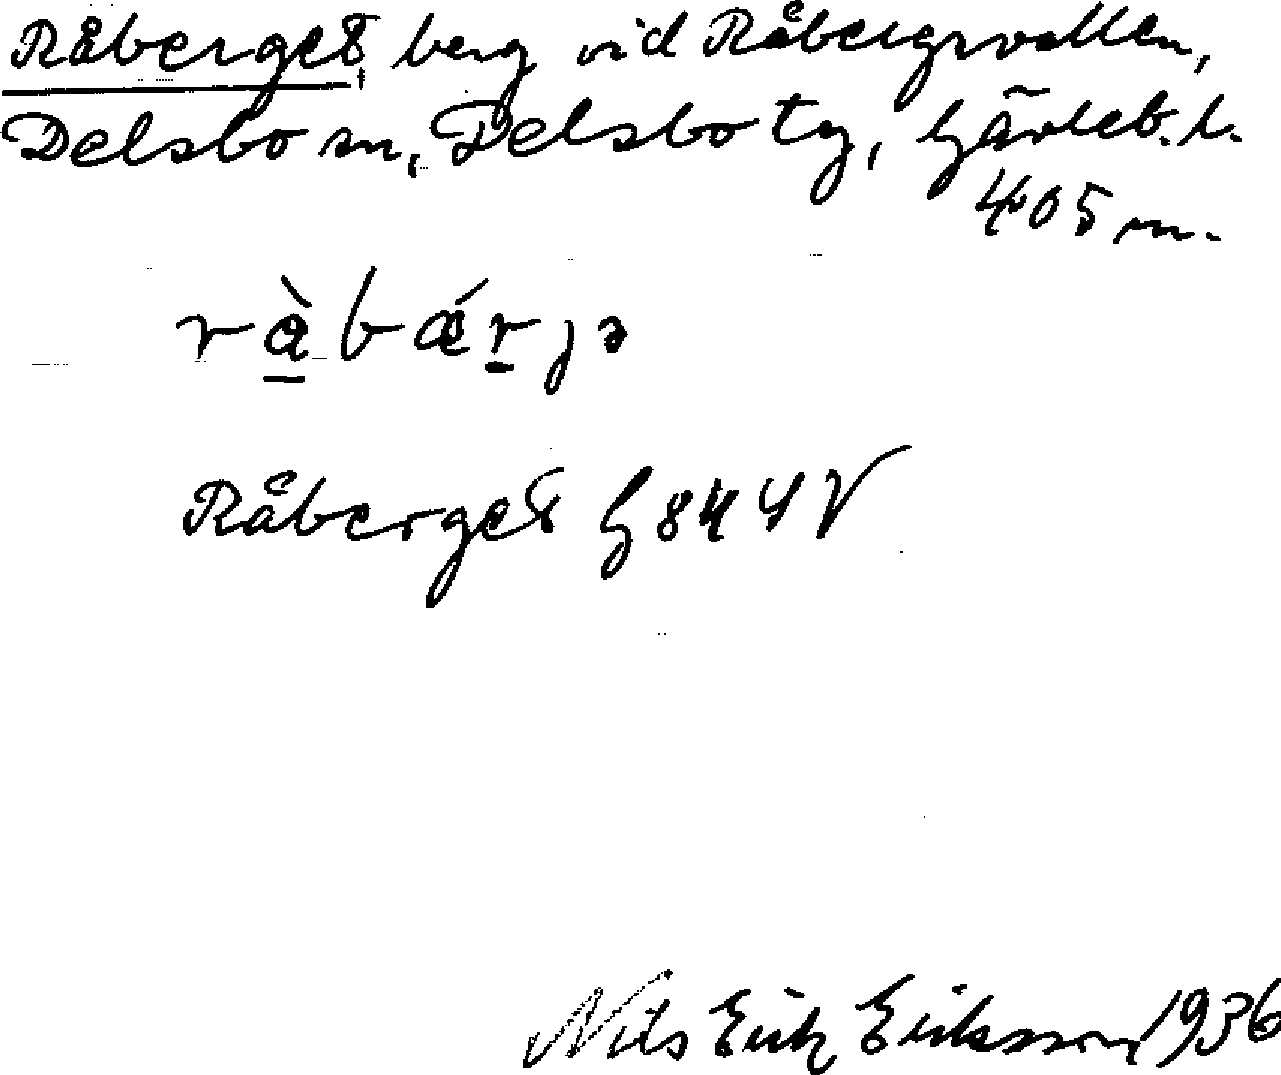 Råberget, berg vid Råbergsvallen,
Delsbo sn, Delsbo tg, Gävleb. l.
405 m.
rå̀bǽrjə
Råberget G 844 V
Nils Erik Eriksson 1936